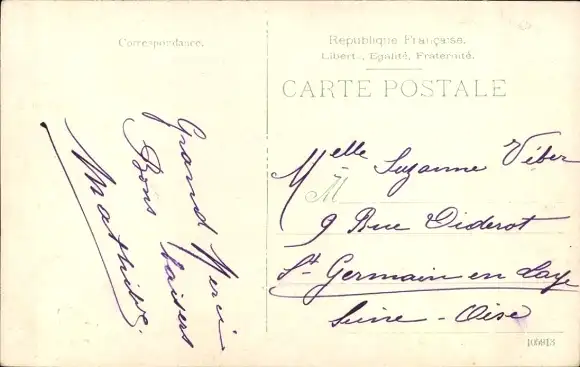 Correspondance.
Grand Merci
Bons baisers
Mathilde.
République Française.
Liberté, Egalité, Fraternité.
CARTE POSTALE
Melle Suzanne Véber
M
9 Rue Diderot
St Germain en Laye
Seine - Oise
105913